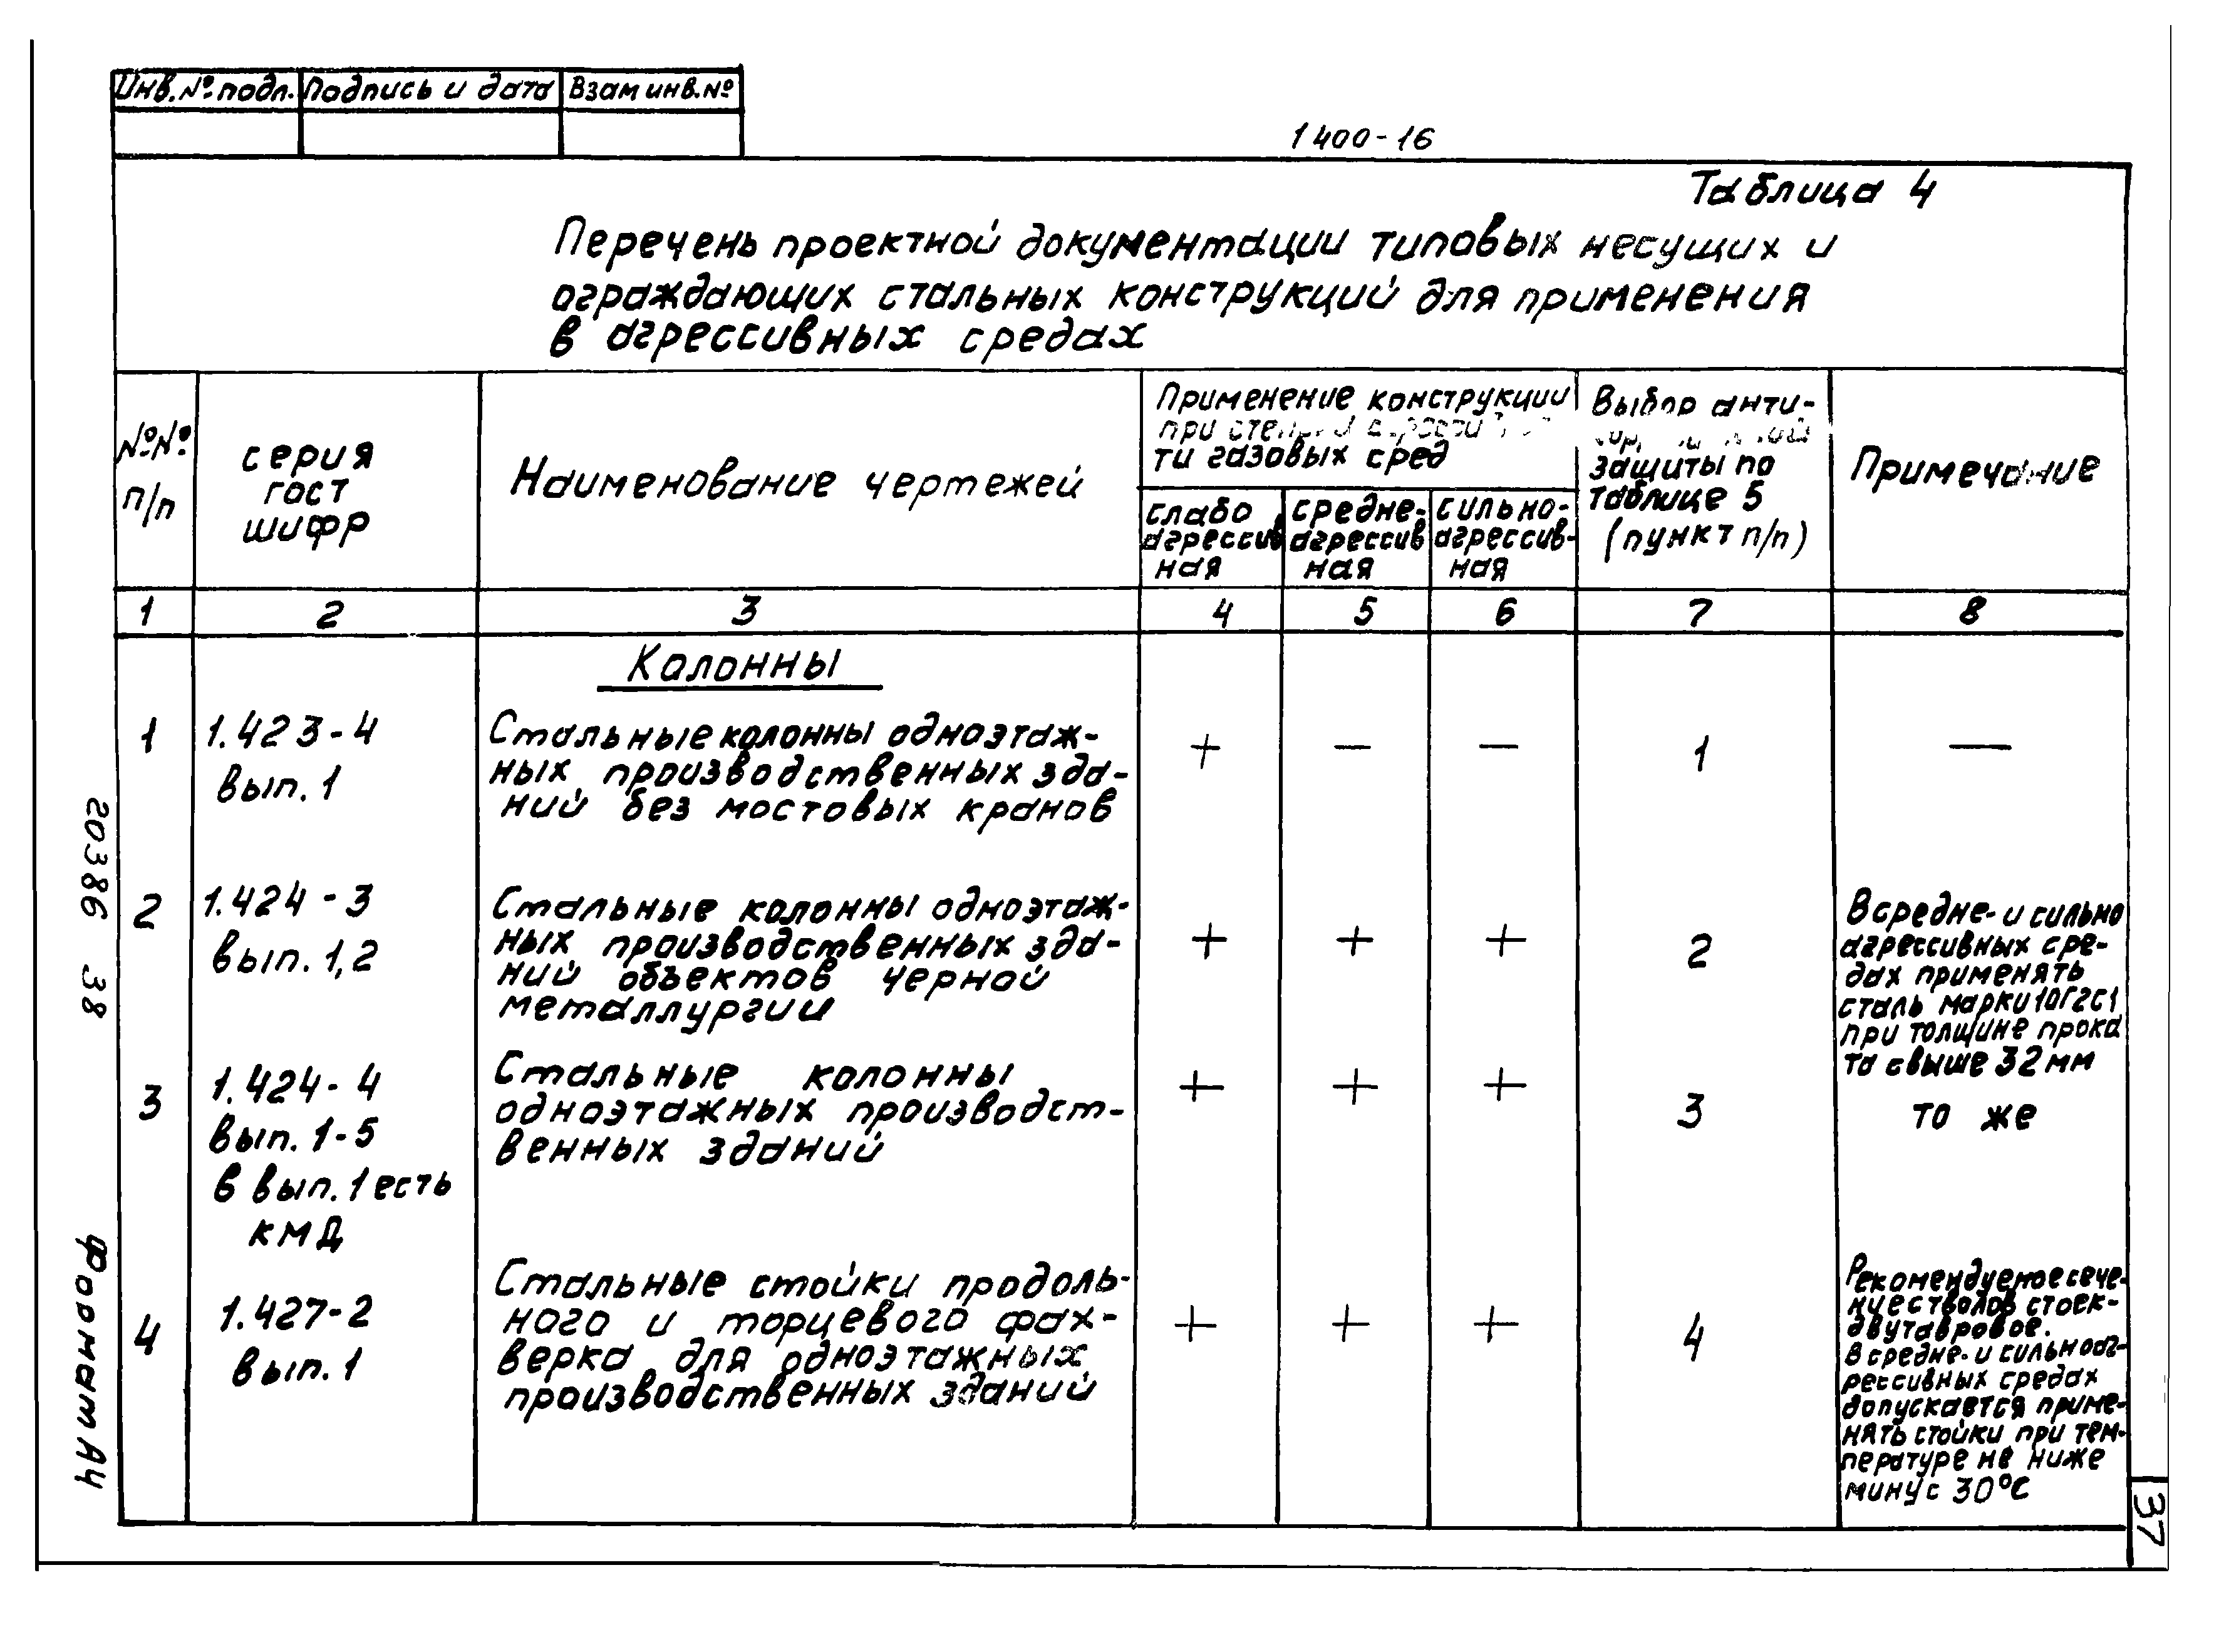 Инв. № подл. Подпись и дата Взам инв. №
1400-16
Таблица 4
Перечень проектной документации типовых несущих и
ограждающих стальных конструкций для применения
в агрессивных средах
№№
п/п
серия
гост
шифр
Наименование чертежей
Применение конструкции
при
ти газовых сред
слабо
агрессив
ная
средне-
агрессив
ная
сильно-
агрессив-
ная
Выбор анти-
защиты по
таблице 5
(пункт п/п)
Примечание
1 2 3 4 5 6 7 8
Колонны
1
1.423-4
вып. 1
Стальные колонны одноэтаж-
ных производственных зда-
ний без мостовых кранов
+ — — 1 —
2
1.424-3
вып. 1,2
Стальные колонны одноэтаж-
ных производственных зда-
ний объектов черной
металлургии
+ + + 2
В средне- и сильно
агрессивных сре-
дах применять
сталь марки 10Г2С1
при толщине прока
та свыше 32 мм
3
1.424-4
вып. 1-5
в вып. 1 есть
КМД
Стальные колонны
одноэтажных производст-
венных зданий
+ + + 3
то же
4
1.427-2
вып. 1
Стальные стойки продоль-
ного и торцевого фах-
верка для одноэтажных
производственных зданий
+ + + 4
Рекомендуемое сече-
ние стволов стоек-
двутавровое.
В средне- и сильноаг-
рессивных средах
допускается приме-
нять стойки при тем-
пературе не ниже
минус 30°С
20386 38
Формат А4
37